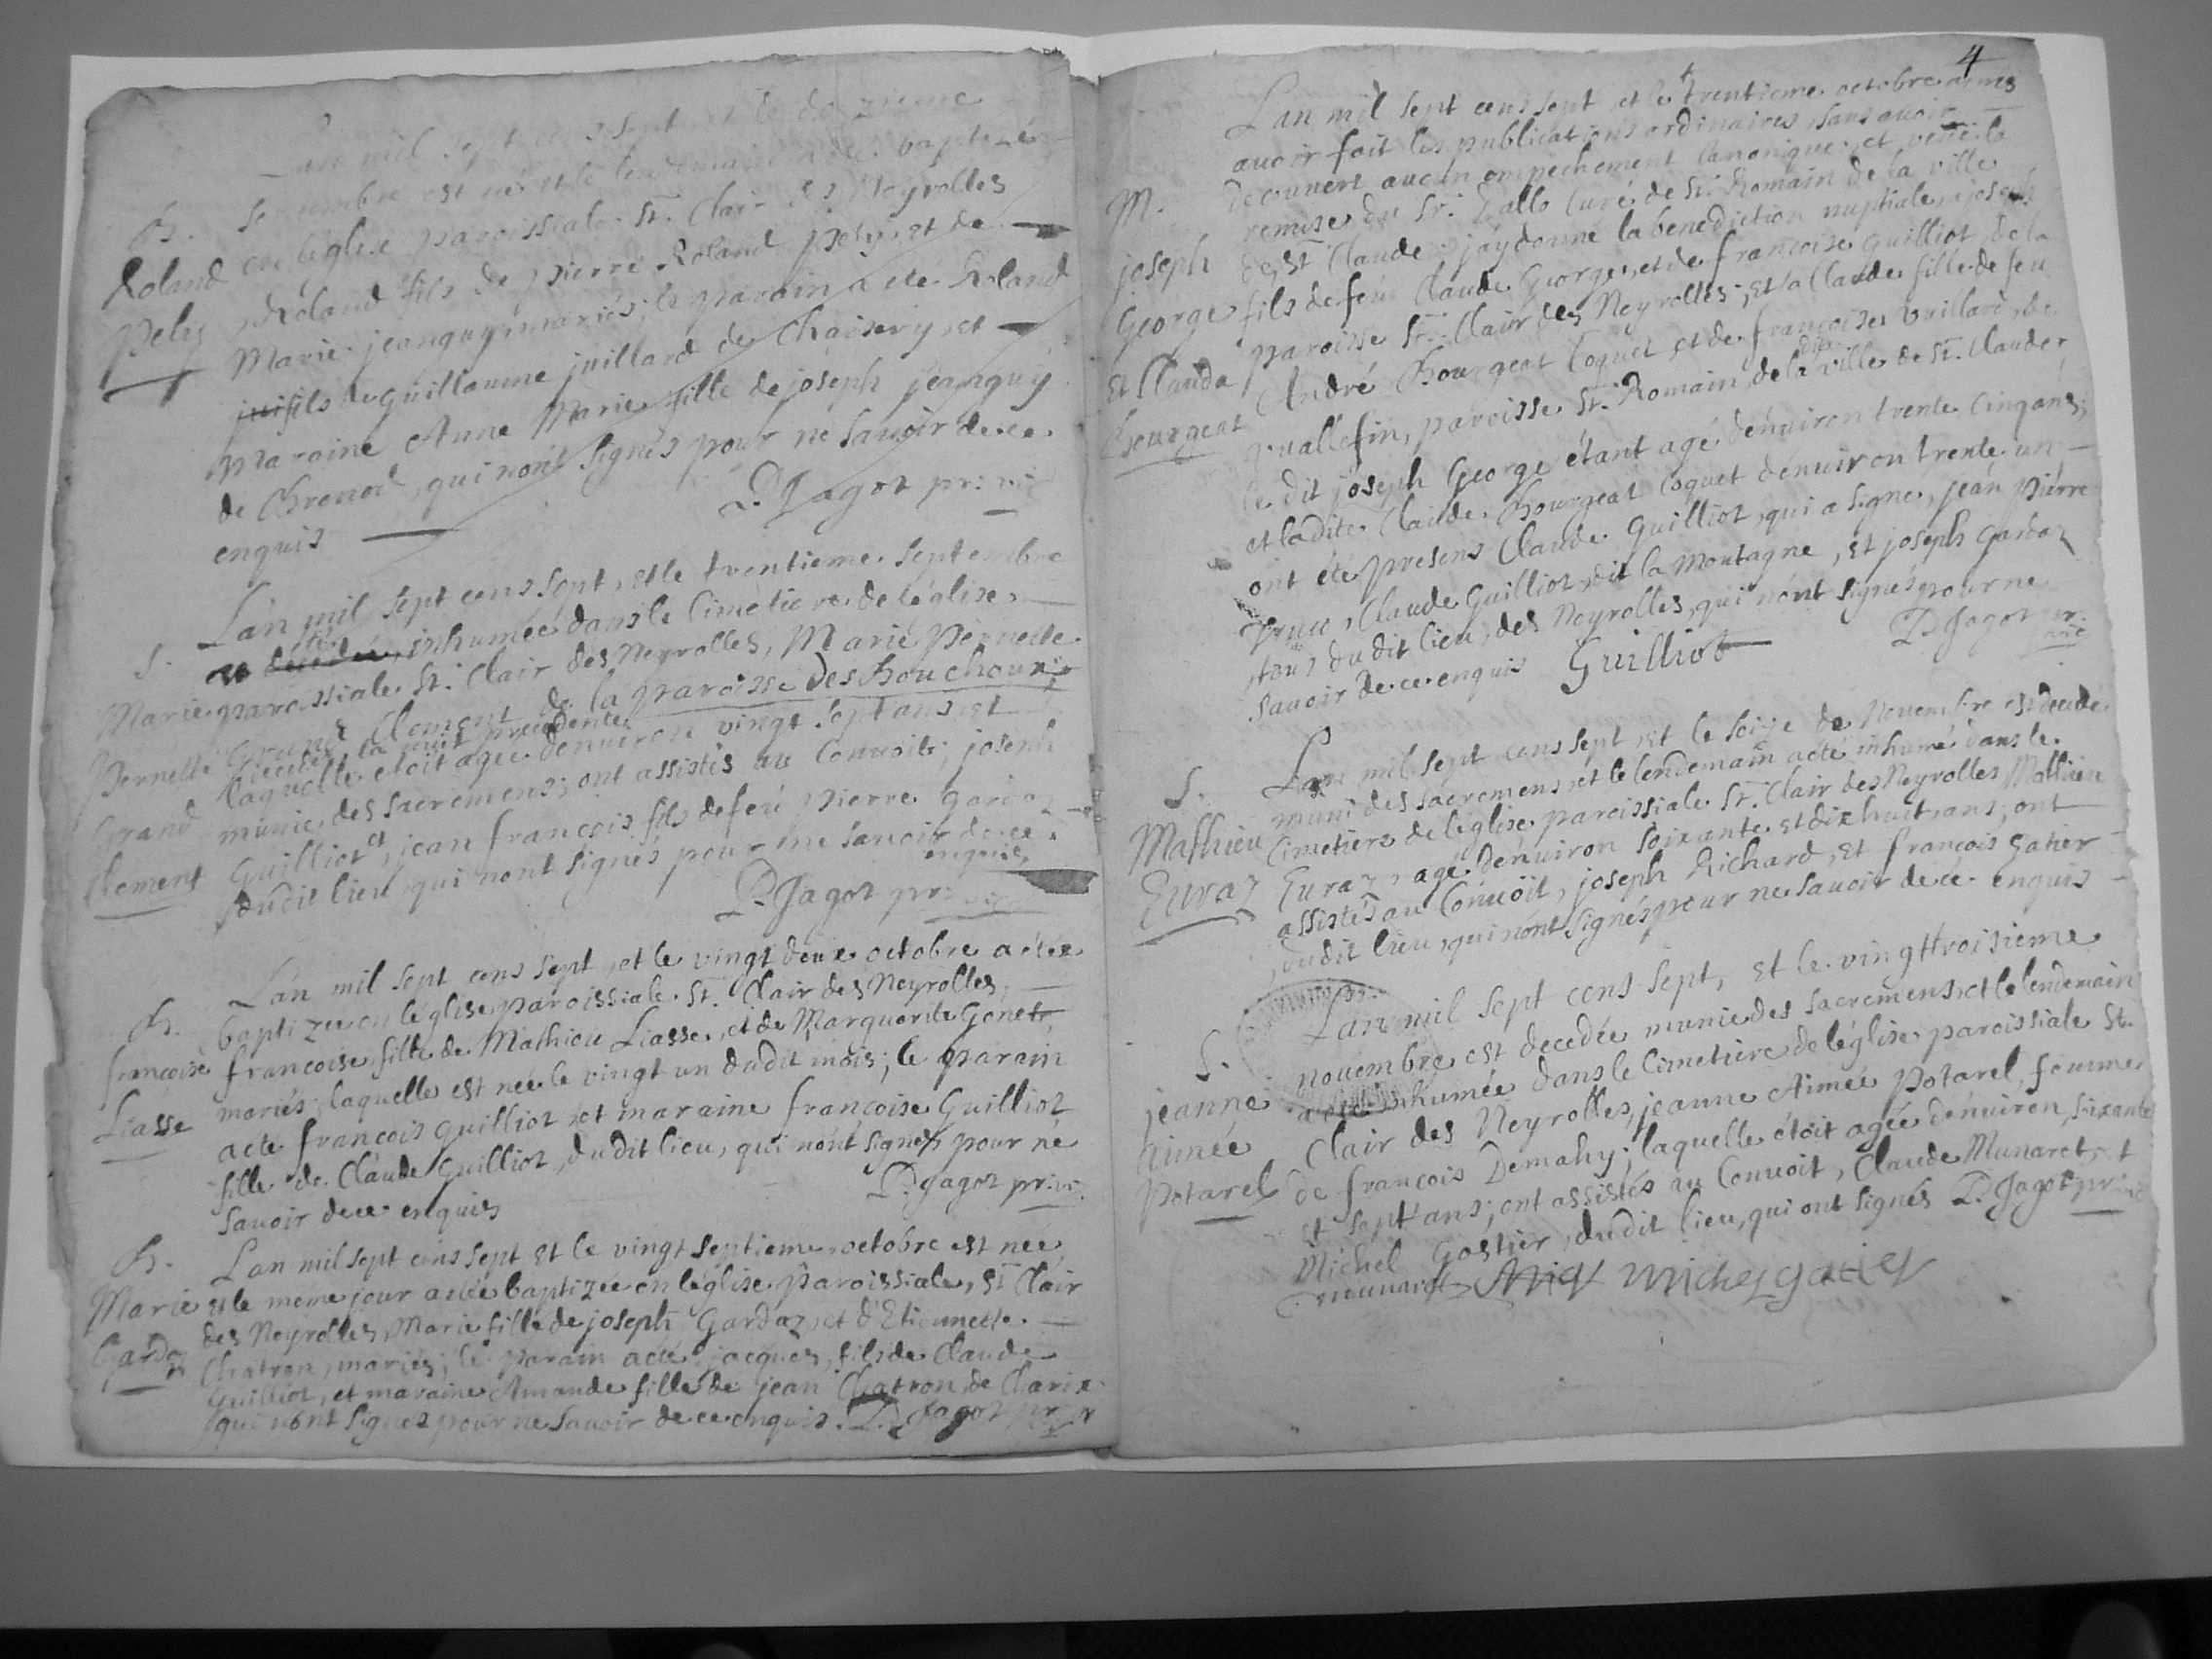 mil sept cens sept et le
est né et le lendemain a été baptizé
B. en léglise paroissiale St. Clair des Neyrolles
Roland Roland fils de pierre Roland pely et de
pely Marie jeanguy mariés; le parain a été Roland
fils de guillaume juillard de Chaisery, et
maraine Anne Marie fille de joseph jeanguy
de Brenod, qui nont signés pour ne savoir de ce
enquis P. Jagot pr: vic
Lán mil sept cens sept, et le trentieme septembre
S. a été inhumée dans le Cimetiere de léglise
Marie paroissiale St. Clair des Neyrolles, Marie pernette
pernette Grand Clement de la paroisse des Bouchoux
decedée la nuit precedente
Grand laquelle etoit agée denuiron vingt sept ans et
munie des sacremens; ont assistés au Conuoit; joseph
Clement Guilliot et jean françois fils de feu pierre gardaz
dudit lieu qui nont signés pour ne sauoir de ce
enquis
P. Jagot pr:
Lán mil sept cens sept, et le vingt deux octobre a étée
B. baptizee en léglise paroissiale St. Clair des Neyrolles,
francoise francoise fille de Mathieu Liasse, et de Marguerite Gonet
Liasse mariés; laquelle est née le vingt un dudit mois; le parain
a eté françois guilliot et maraine françoise Guilliot
fille de Claude Guilliot, dudit lieu, qui nónt signés pour ne
sauoir de ce enquis P. Jagot pr: vi:
B. Lan mil sept cens sept et le vingt septieme octobre est née
Marie et le meme jour a été baptizée en léglise paroissiale, St Clair
des Neyrolles, Marie fille de joseph Gardaz et d'Etiennette
Gardaz Chatron, mariés; le parain a eté jacques, fils de Claude
guilliot, et maraine Amande fille de jean Chatron de Charix
qui nónt signés pour ne sauoir de ce enquis. P. Jagot pr
4
Lan mil sept cens sept et le trentieme octobre apres
auoir fait les publications ordinaires, sans auoir
M. decouuert aucun empechement Canonique, et veüe la
remise du Sr. Curé de St. Romain de la ville
joseph de St Claude; jáy donné la benediction nuptiale, a joseph
George fils de feu Claude George, et de françoise guilliot de la
et Clauda paroisse St. Clair des Neyrolles; et a Claude fille de feu
Bourgeat André Bourgeat Coquet et de françoise Vuillard, de
vallefin, paroisse St. Romain de la ville de St. Claude,
le dit joseph George étant agé denuiron trente Cinq ans;
et la dite Claude Bourgeat Coquet denuiron trente un
ont été presens Claude Guilliot, qui a signe, jean pierre
Claude Guilliot dit la Montagne, et joseph Gardaz
tous du dit lieu des Neyrolles, qui nónt signés pour ne
sauoir de ce enquis Guilliot P. Jagot pr:
vic
Lan mil sept cens sept et le seize de Nouembre est decedé
S. muni des sacremens, et le lendemain a eté inhumé dans le
Mathieu Cimetiere de léglise paroissiale St. Clair des Neyrolles Mathieu
Euraz Euraz, agé denuiron soixante et dix huit ans; ont
assistés au Conuoit, joseph Richard, et françois gatier
dudit lieu, qui nónt signés pour ne sauoir de ce enquis
Lan mil sept cens sept, et le vingt troisieme
S. nouembre est decedée munie des sacremens, et le lendemain
jeanne a eté inhumée dans le Cimetiere de léglise paroissiale St.
Aimée Clair des Neyrolles, jeanne Aimée Potarel, femme
Potarel de françois Demahy; laquelle étoit agée denuiron, soixante
et sept ans; ont assistés au Conuoit, Claude Munaret, et
Michel Gastier, dudit lieu, qui ont signés P. Jagot pr
munaret michel gatier